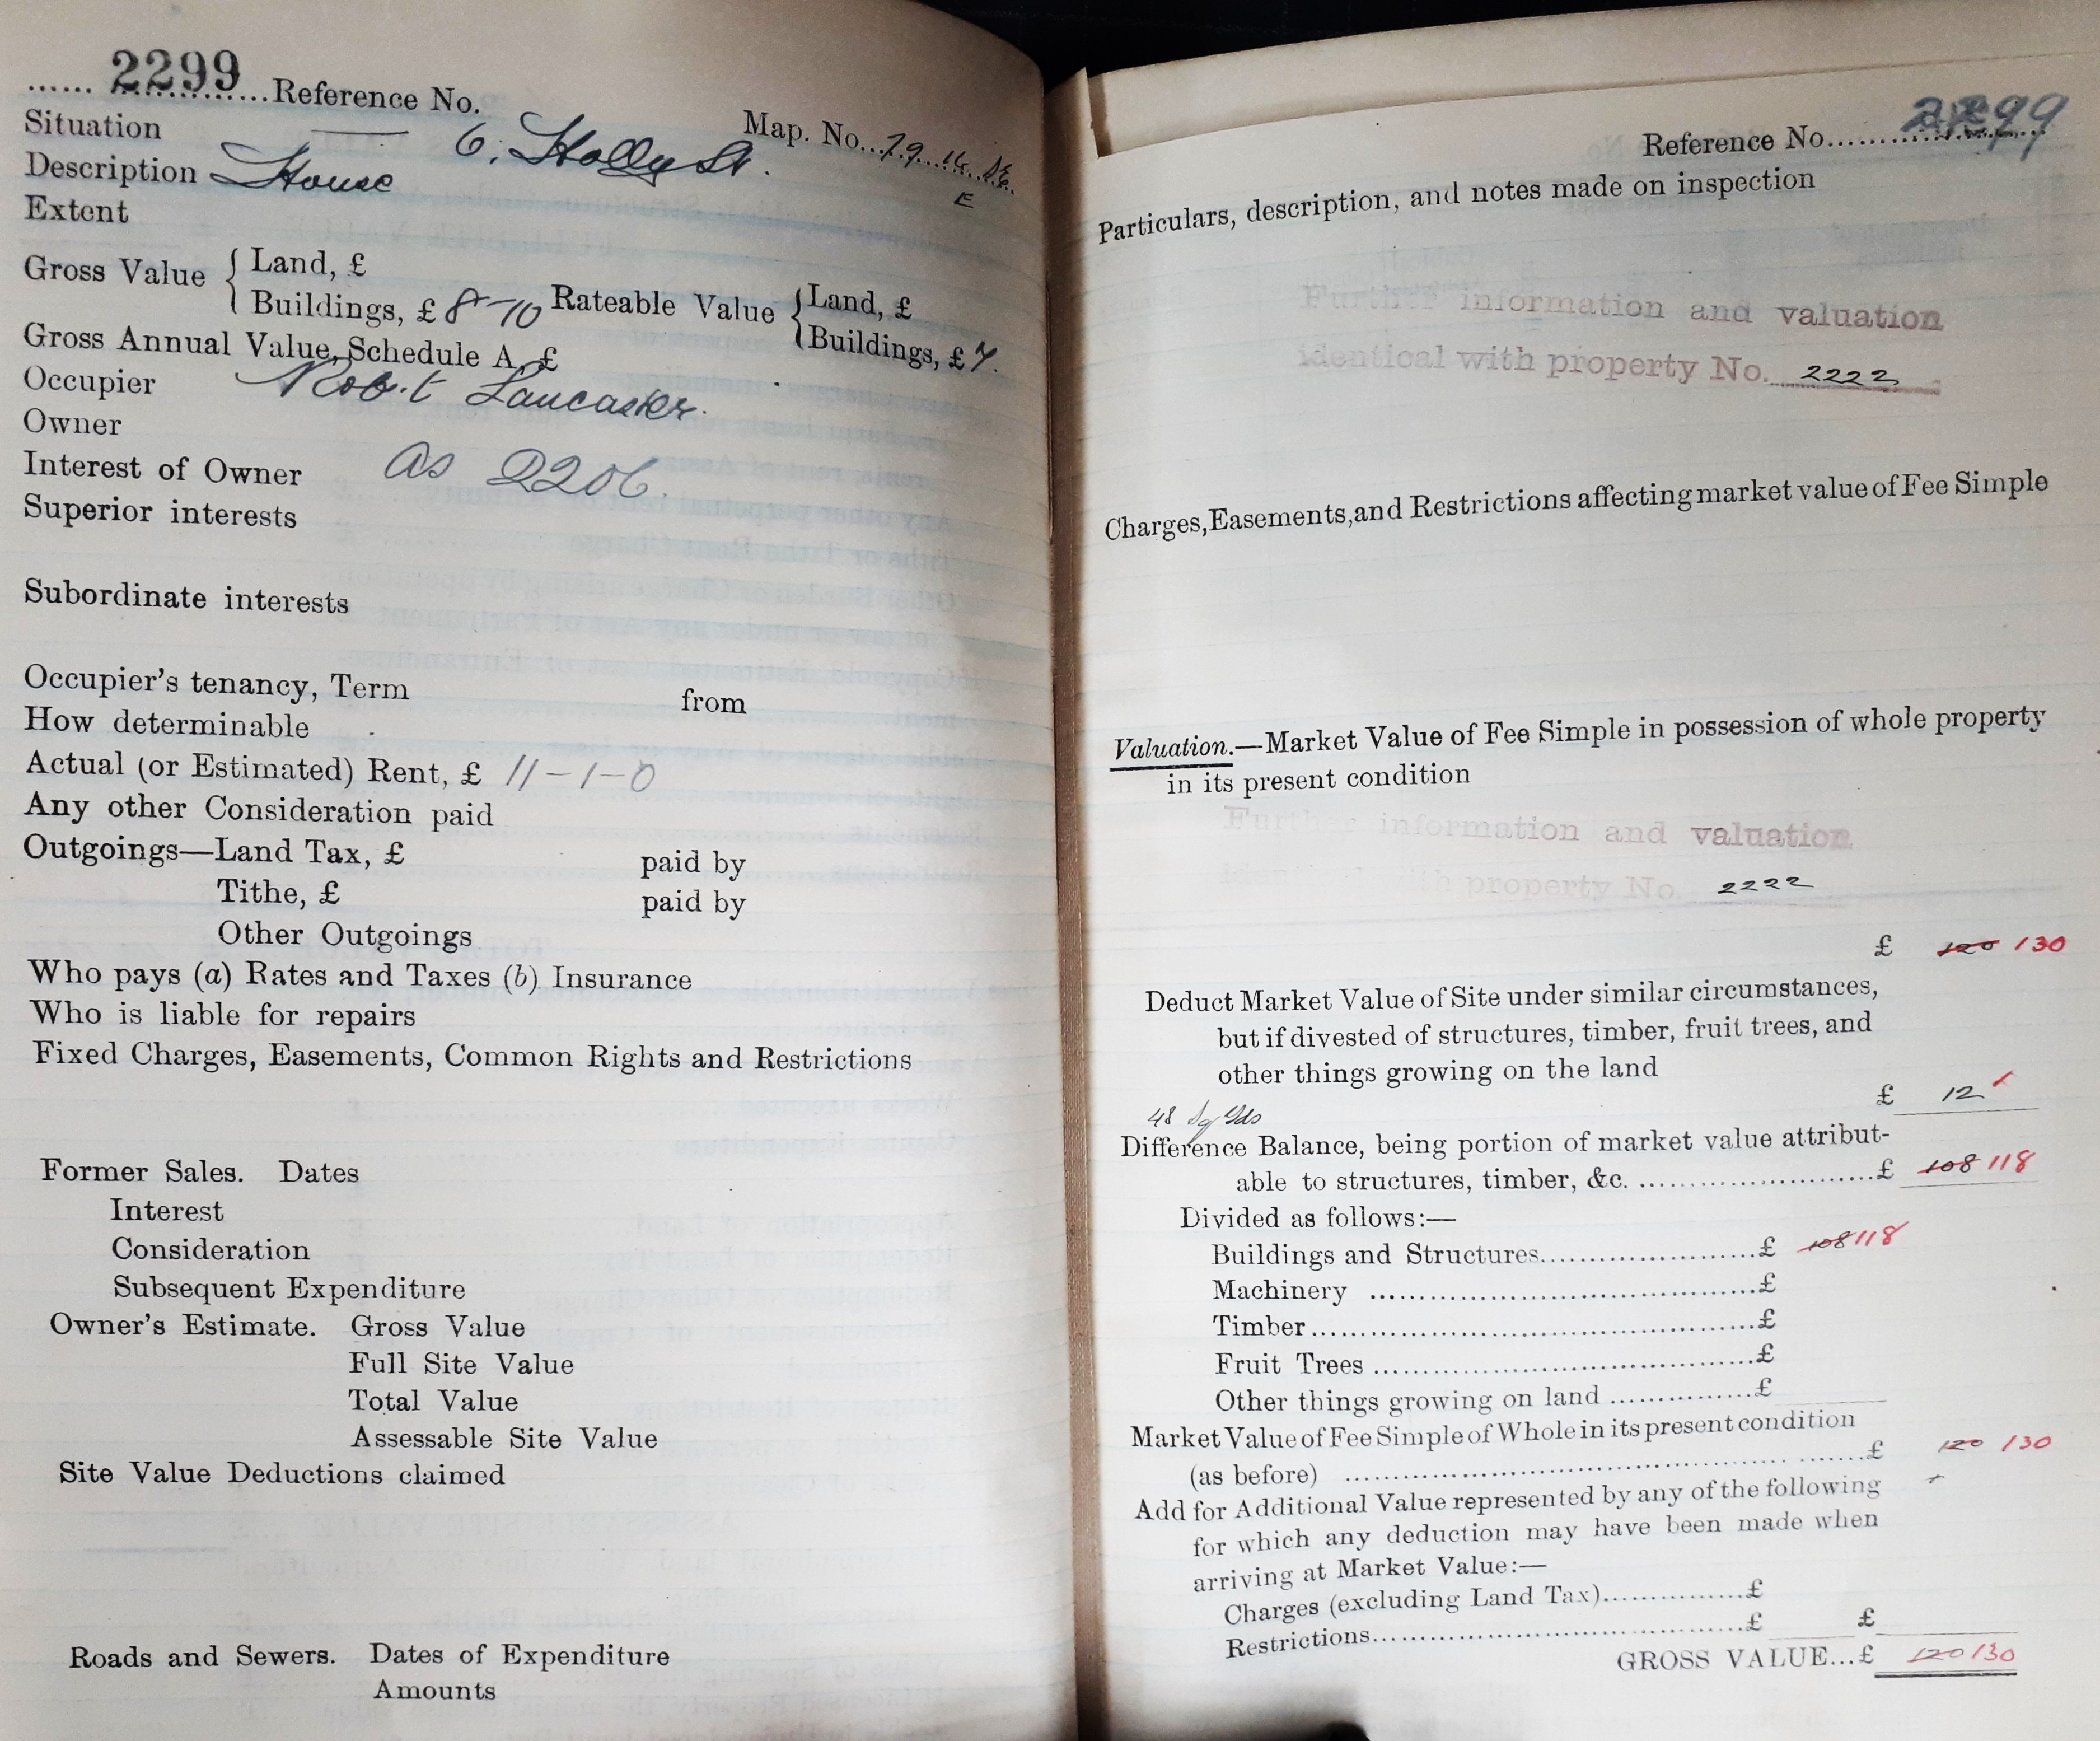 ...... 2299 ............Reference No.
Map. No. 79. 14.
E
Situation 6, Holly St.
Description House
Extent
Gross Value { Land, £
Buildings, £ 8-10 Rateable Value { Land, £
Buildings, £ 7.
Gross Annual Value, Schedule A, £
Occupier Rob.t Lancaster.
Owner
Interest of Owner as 2206.
Superior interests
Subordinate interests
Occupier's tenancy, Term from
How determinable
Actual (or Estimated) Rent, £ 11-1-0
Any other Consideration paid
Outgoings—Land Tax, £ paid by
Tithe, £ paid by
Other Outgoings
Who pays (a) Rates and Taxes (b) Insurance
Who is liable for repairs
Fixed Charges, Easements, Common Rights and Restrictions
Former Sales. Dates
Interest
Consideration
Subsequent Expenditure
Owner's Estimate. Gross Value
Full Site Value
Total Value
Assessable Site Value
Site Value Deductions claimed
Roads and Sewers. Dates of Expenditure
Amounts
Reference No. 2299
Particulars, description, and notes made on inspection
Further information and valuation
identical with property No. 2222
Charges, Easements, and Restrictions affecting market value of Fee Simple
Valuation.—Market Value of Fee Simple in possession of whole property
in its present condition
Further information and valuation
identical with property No. 2222
£ 120 130
Deduct Market Value of Site under similar circumstances,
but if divested of structures, timber, fruit trees, and
other things growing on the land
£ 12
48 Sq Yds
Difference Balance, being portion of market value attribut-
able to structures, timber, &c. ........................£ 108 118
Divided as follows:—
Buildings and Structures......................£ 108 118
Machinery ......................................£
Timber............................................£
Fruit Trees ......................................£
Other things growing on land ..............£
Market Value of Fee Simple of Whole in its present condition
(as before) ..................................................£ 120 130
Add for Additional Value represented by any of the following
for which any deduction may have been made when
arriving at Market Value:—
Charges (excluding Land Tax)..............£
Restrictions......................................£ £
GROSS VALUE...£ 120 130